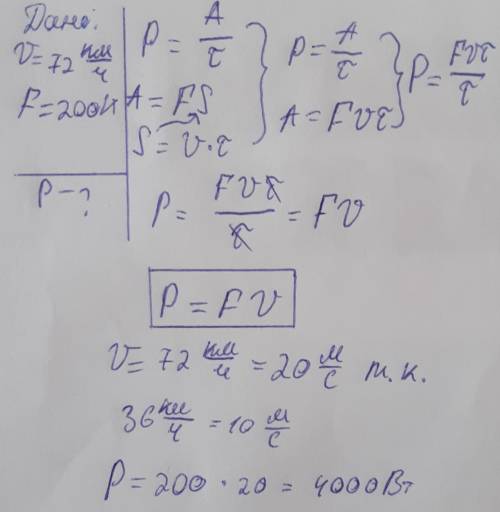 Дано:
V = 72 км/ч
F = 200Н
P - ?
P = A/τ
A = FS
S = V·τ
P = A/τ
A = FVτ
P = FVτ/τ
P = FVτ/τ = FV
P = FV
V = 72 км/ч = 20 м/с т.к.
36 км/ч = 10 м/с
P = 200 · 20 = 4000Вт